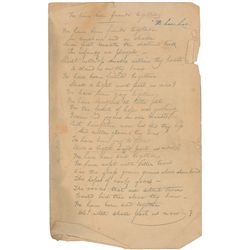 We have been friends together
We have been friends together
In sunshine and in shade
Since first beneath the
In infancy we played
But coldness dwells within thy heart
A cloud is on thy brow
We have been friends together
Shall a light word part us now?
We have been gay together
We have laugh'd at little jests
For the fount of hope was gushing
Warm and joyous in our breasts
But laughter now hath fled thy lip
And sullen glooms thy brow
We have been gay together
Shall a light word part us now?
We have been sad together
We have wept with bitter tears
O'er the grass grown graves where slumber'd
The hopes of early years
The voices that
Would bid thee clear thy brow
We have been sad together
Oh! what shall part us now?